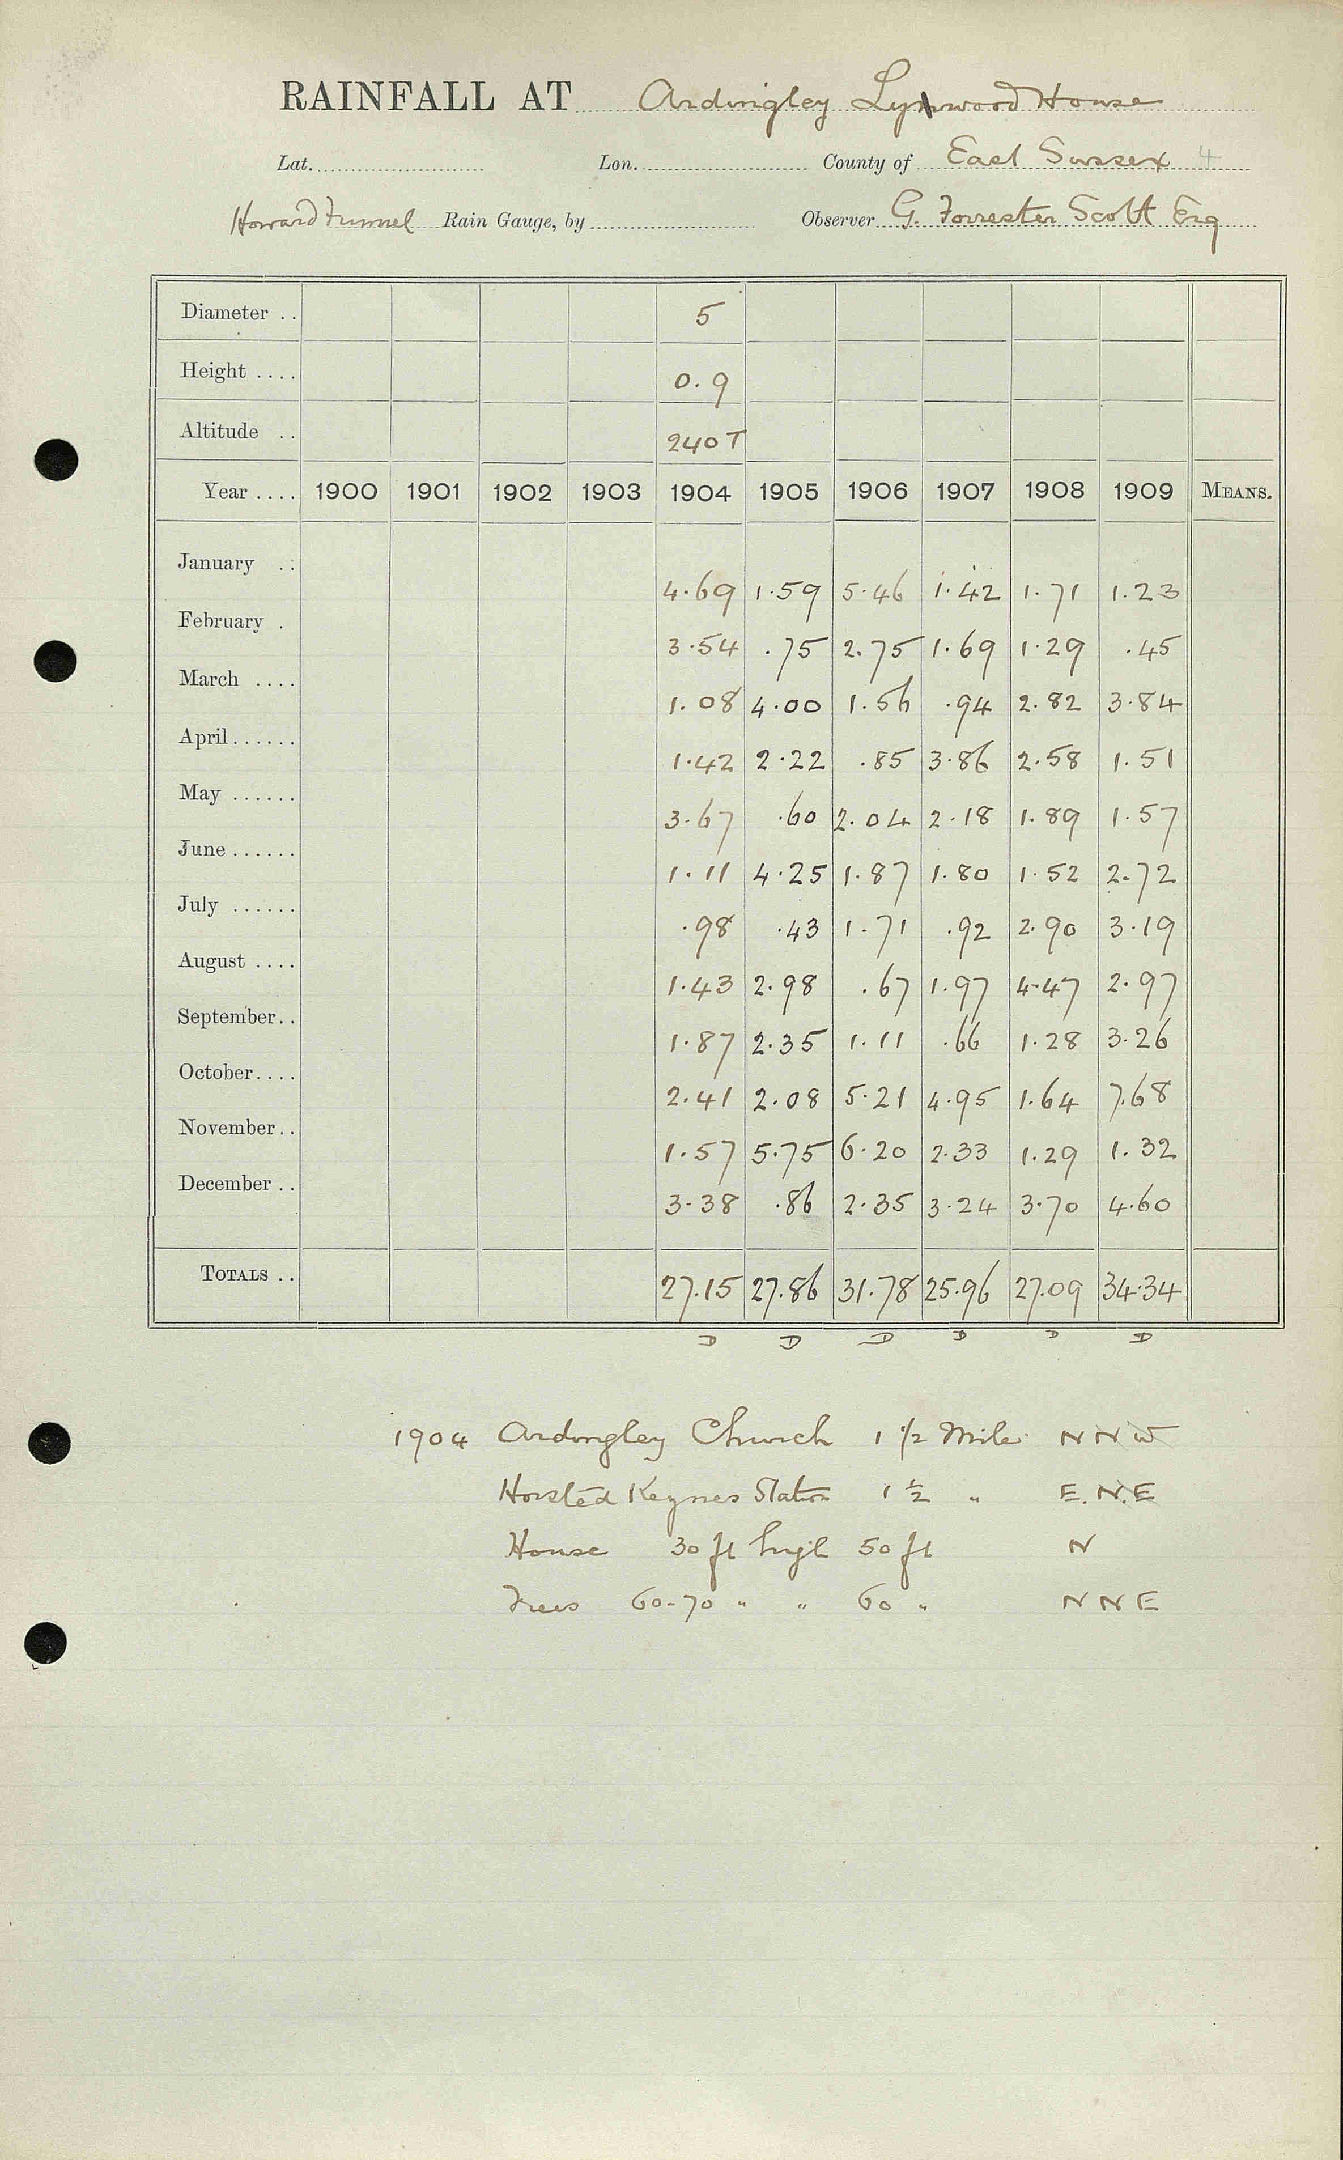 RAINFALL AT Ardingley Lynwood House
Lat. Lon. County of East Sussex 4
Howard Funnel Rain Gauge, by Observer G. Forrester Scott Esq
Diameter .. 5
Height .... 0.9
Altitude .. 240 T
Year .... 1900 1901 1902 1903 1904 1905 1906 1907 1908 1909 MEANS.
January .. 4.69 1.59 5.46 1.42 1.71 1.23
February . 3.54 .75 2.75 1.69 1.29 .45
March .... 1.08 4.00 1.56 .94 2.82 3.84
April...... 1.42 2.22 .85 3.86 2.58 1.51
May ...... 3.67 .60 2.04 2.18 1.89 1.57
June...... 1.11 4.25 1.87 1.80 1.52 2.72
July ...... .98 .43 1.71 .92 2.90 3.19
August .... 1.43 2.98 .67 1.97 4.47 2.97
September.. 1.87 2.35 1.11 .66 1.28 3.26
October.... 2.41 2.08 5.21 4.95 1.64 7.68
November.. 1.57 5.75 6.20 2.33 1.29 1.32
December .. 3.38 .86 2.35 3.24 3.70 4.60
TOTALS .. 27.15 27.86 31.78 25.96 27.09 34.34
D D D D D D
1904 Ardingley Church 1 1/2 Mile N N W
Horsted Keynes Station 1 1/2 " E.N.E
House 30 ft high 50 ft N
Trees 60-70 " " 60 " N N E